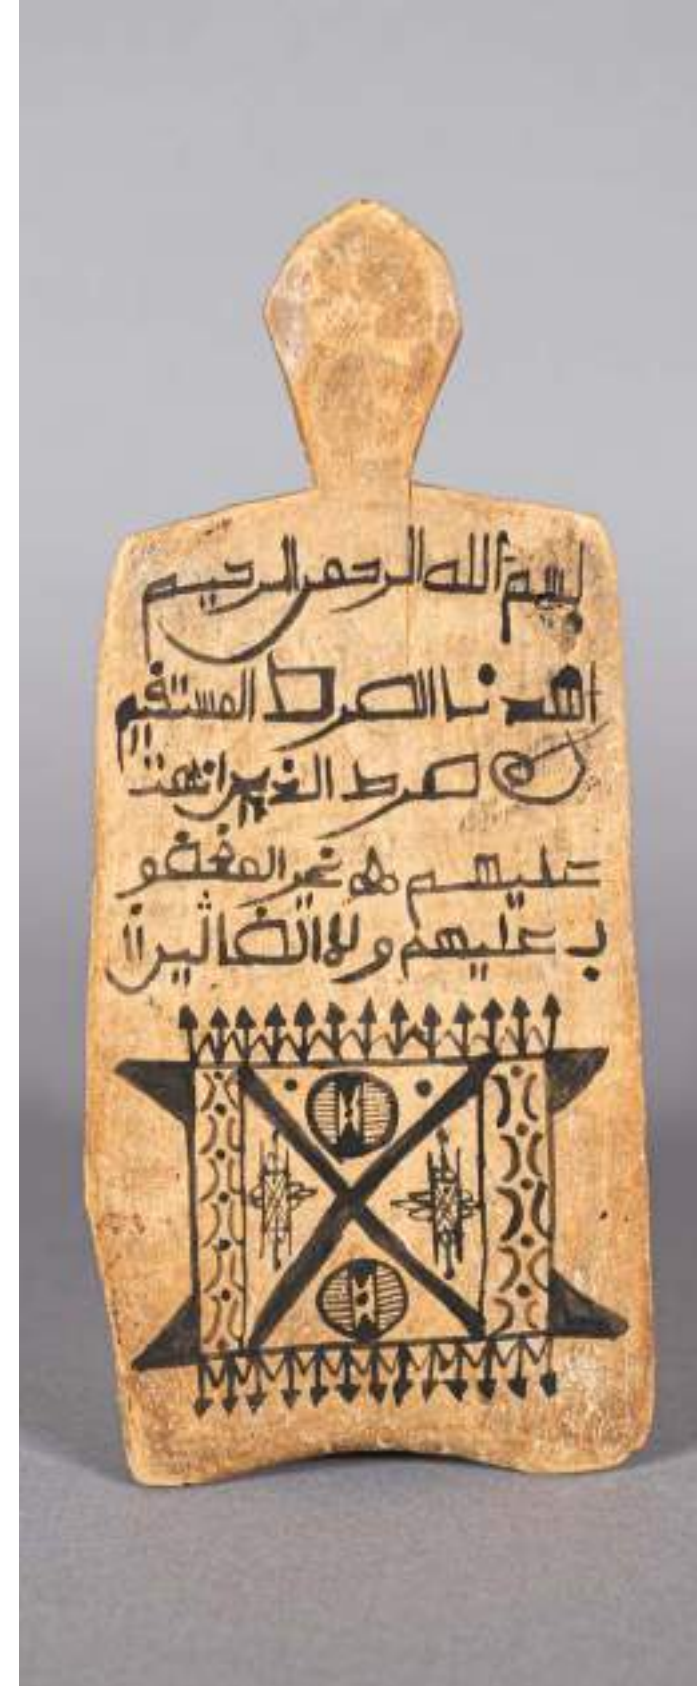 بسم الله الرحمن الرحيم
اهدنا الصرط المستقيم
صرط الذين انعمت
عليهم غير المغضو
ب عليهم ولا الضالين